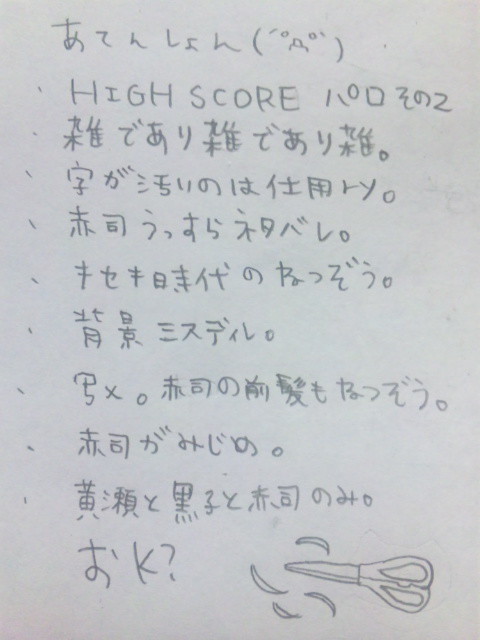 あてんしょん(´º艸º`)
・HIGH SCORE パロその2
・雑であり雑であり雑。
・字が汚いのは仕用トソ。
・赤司うっすらネタバレ。
・キセキ時代のねつぞう。
・背景ミスディレ。
・写メ。赤司の前髪もねつぞう。
・赤司がみじめ。
・黄瀬と黒子と赤司のみ。
おK?